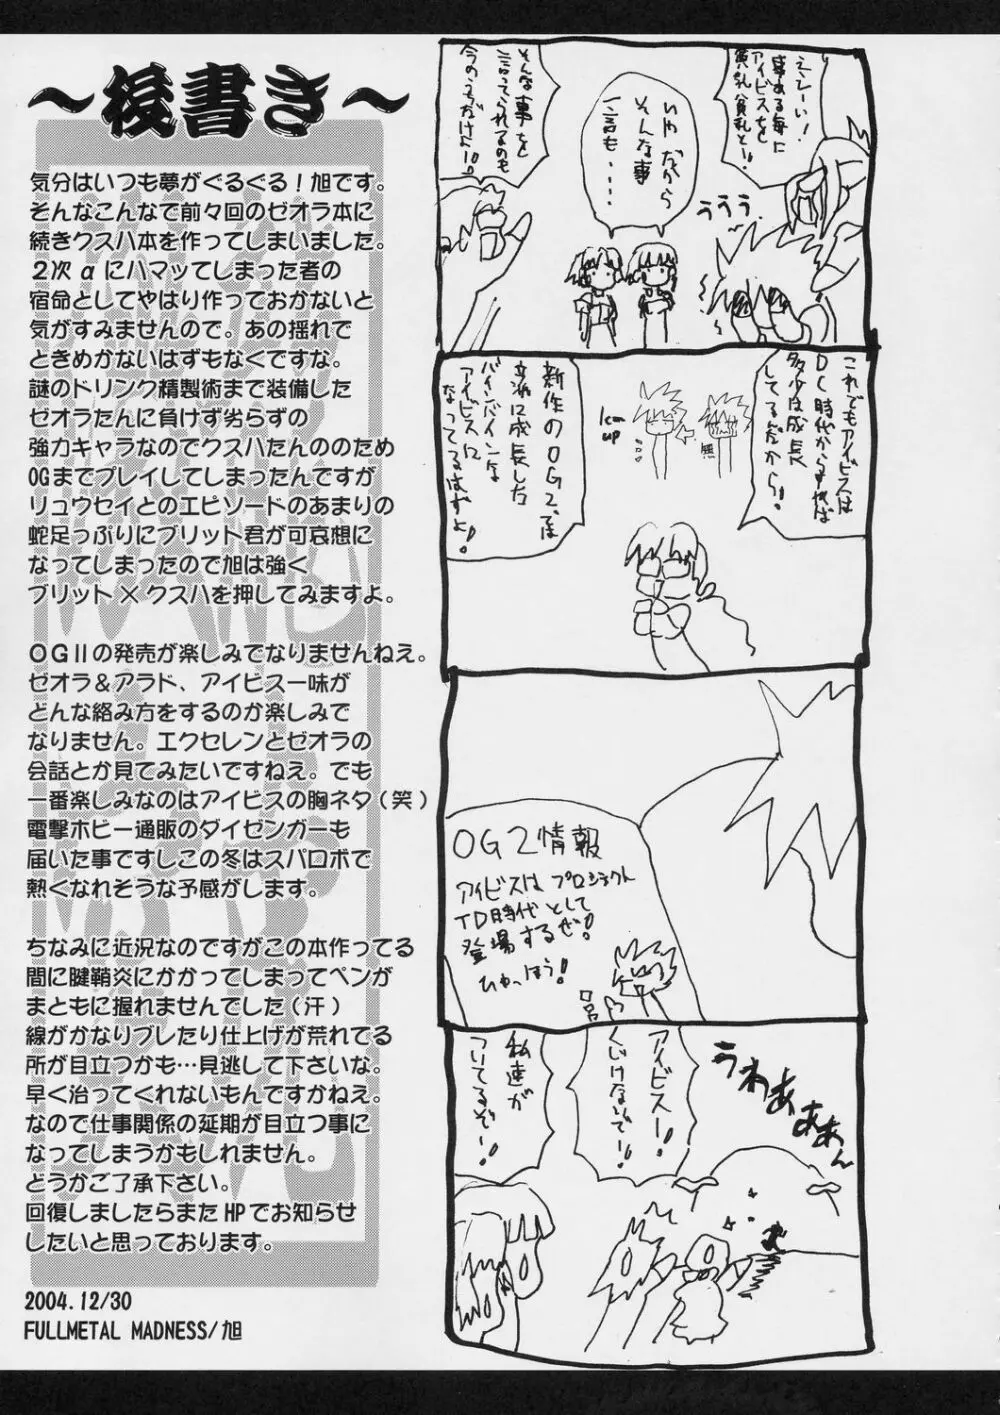 ～後書き～
気分はいつも夢がぐるぐる！旭です。
そんなこんなで前々回のゼオラ本に
続きクスハ本を作ってしまいました。
２次αにハマッてしまった者の
宿命としてやはり作っておかないと
気がすみませんので。あの揺れで
ときめかないはずもなくですな。
謎のドリンク精製術まで装備した
ゼオラたんに負けず劣らずの
強力キャラなのでクスハたんののため
OGまでプレイしてしまったんですが
リュウセイとのエピソードのあまりの
蛇足っぷりにブリット君が可哀想に
なってしまったので旭は強く
ブリット×クスハを押してみますよ。
OGⅡの発売が楽しみでなりませんねえ。
ゼオラ＆アラド、アイビス一味が
どんな絡み方をするのか楽しみで
なりません。エクセレンとゼオラの
会話とか見てみたいですねえ。でも
一番楽しみなのはアイビスの胸ネタ（笑）
電撃ホビー通販のダイゼンガーも
届いた事ですしこの冬はスパロボで
熱くなれそうな予感がします。
ちなみに近況なのですがこの本作ってる
間に腱鞘炎にかかってしまってペンが
まともに握れませんでした（汗）
線がかなりブレたり仕上げが荒れてる
所が目立つかも…見逃して下さいな。
早く治ってくれないもんですかねえ。
なので仕事関係の延期が目立つ事に
なってしまうかもしれません。
どうかご了承下さい。
回復しましたらまたHPでお知らせ
したいと思っております。
2004.12/30
FULLMETAL MADNESS/旭
えーい！
事ある毎に
アイビスを
貧乳貧乳と！！
いやだから
そんな事
一言も・・・・
ううう
そんな事を
言ってられるのも
今のうちだけよ！！
これでもアイビスは
DC時代からすれば
多少は成長
してるんだから！
1cm
up
無
新作のOG2では
立派に成長した
バインバインな
アイビスに
なってるはずよ！
OG2情報
アイビスはプロジェクト
TD時代として
登場するぜ！
ひゃっほう！
うわあああん
アイビスー！
くじけないでー！！
私達が
ついてるぞー！